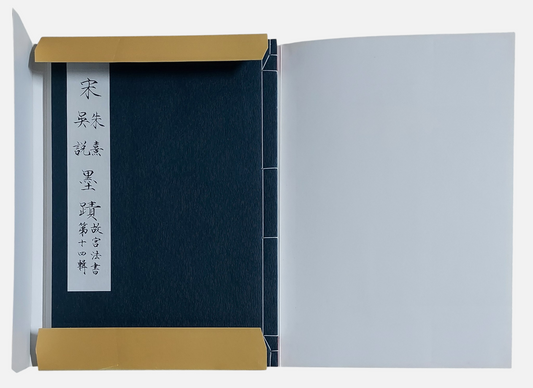 宋
朱熹
吳說
墨蹟
故宮法書
第十四輯